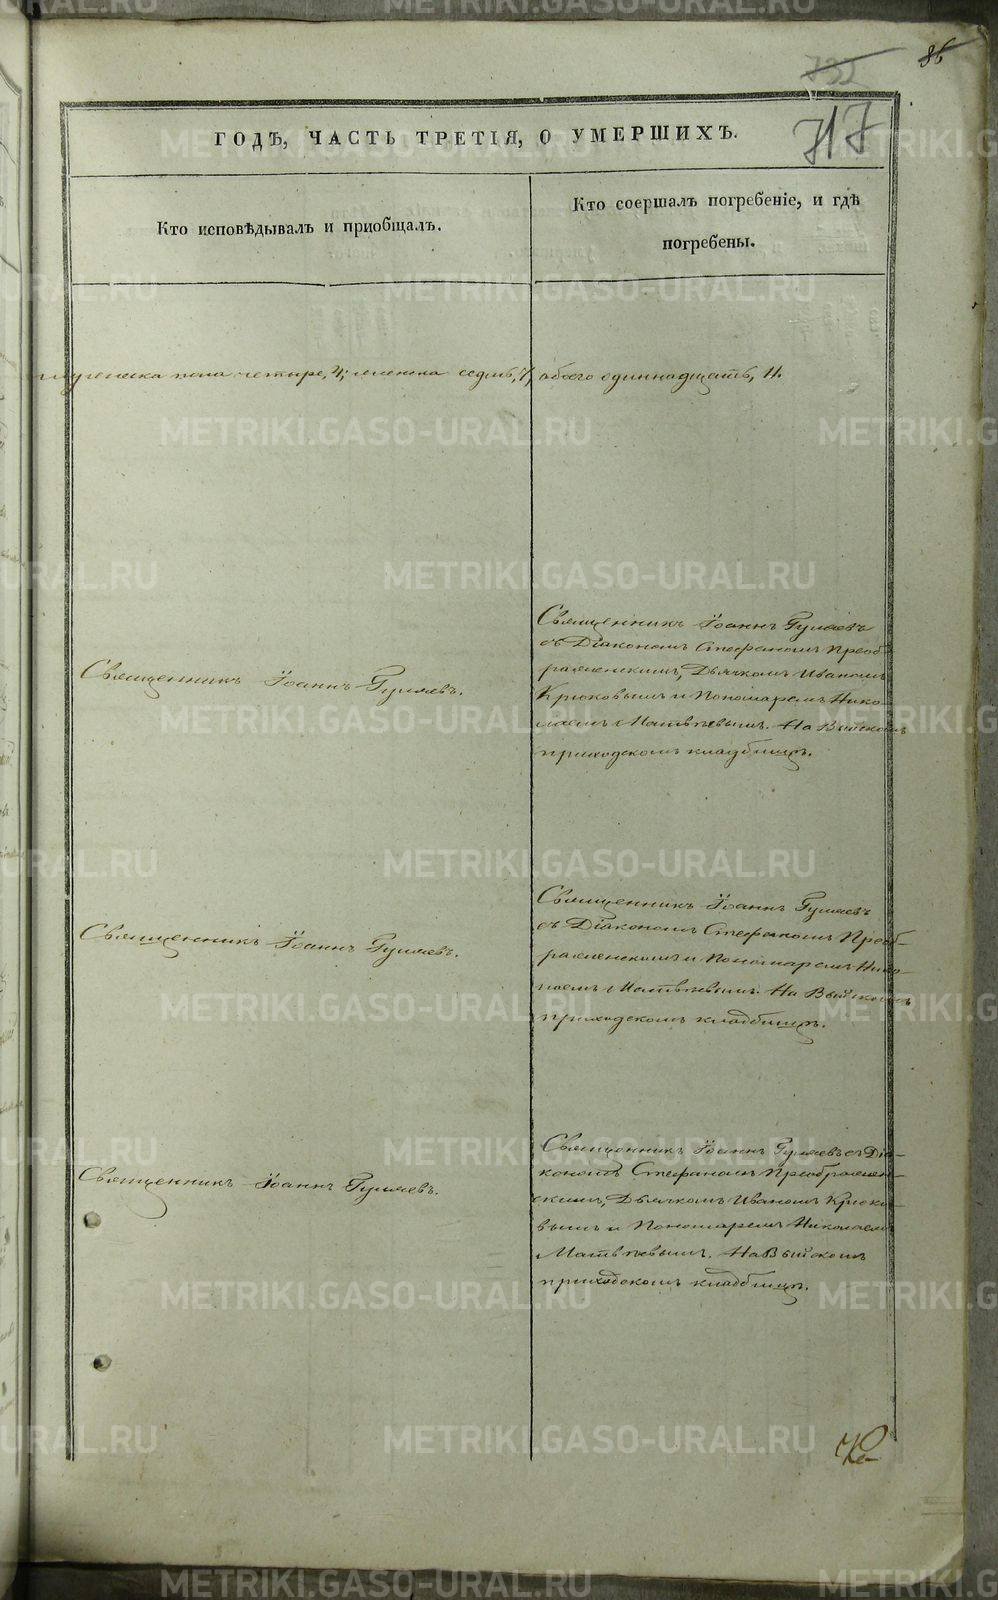 86
732
717
ГОДѢ, ЧАСТЬ ТРЕТІЯ, О УМЕРШИХЪ.
Кто исповѣдывалъ и пріобщалъ.
Кто соершалъ погребеніе, и гдѣ
погребены.
мужеска пола четыре, 4; женска седмь, 7, обоего одиннадцать, 11.
Священникъ Іоаннъ Гуляевъ.
Священникъ Іоаннъ Гуляевъ
съ Діакономъ Стефаномъ Преоб-
раженскимъ, Дьячкомъ Иваномъ
Крюковымъ и Пономаремъ Нико-
лаемъ Матвѣевымъ. На Выйскомъ
приходскомъ кладбищѣ.
Священникъ Іоаннъ Гуляевъ.
Священникъ Іоаннъ Гуляевъ
съ Діакономъ Стефаномъ Преоб-
раженскимъ и Пономаремъ Нико-
лаемъ Матвѣевымъ. На Выйскомъ
приходскомъ кладбищѣ.
Священникъ Іоаннъ Гуляевъ.
Священникъ Іоаннъ Гуляевъ съ Діа-
кономъ Стефаномъ Преображен-
скимъ, Дьячкомъ Иваномъ Крюко-
вымъ и Пономаремъ Николаемъ
Матвѣевымъ. На Выйскомъ
приходскомъ кладбищѣ.
METRIKI.GASO-URAL.RU